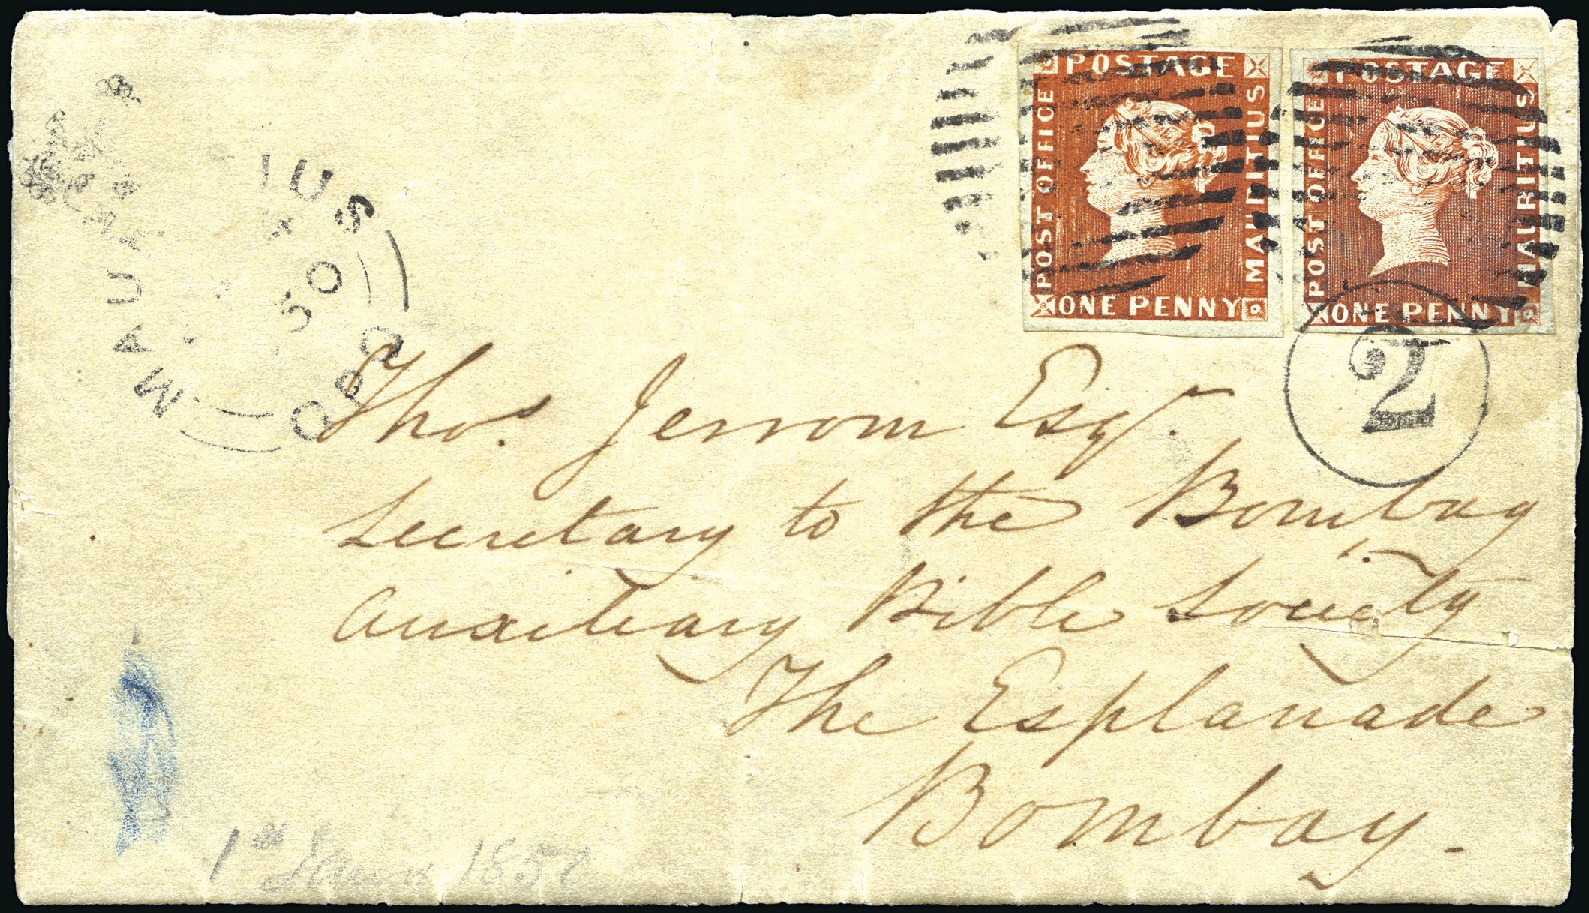 POSTAGE
POST OFFICE
MAURITIUS
ONE PENNY
POSTAGE
POST OFFICE
MAURITIUS
ONE PENNY
MAU IUS
50
GPO
2
Thos. Jerrom Esqr.
Secretary to the Bombay
Auxiliary Bible Society
The Esplanade
Bombay.
1st 1850